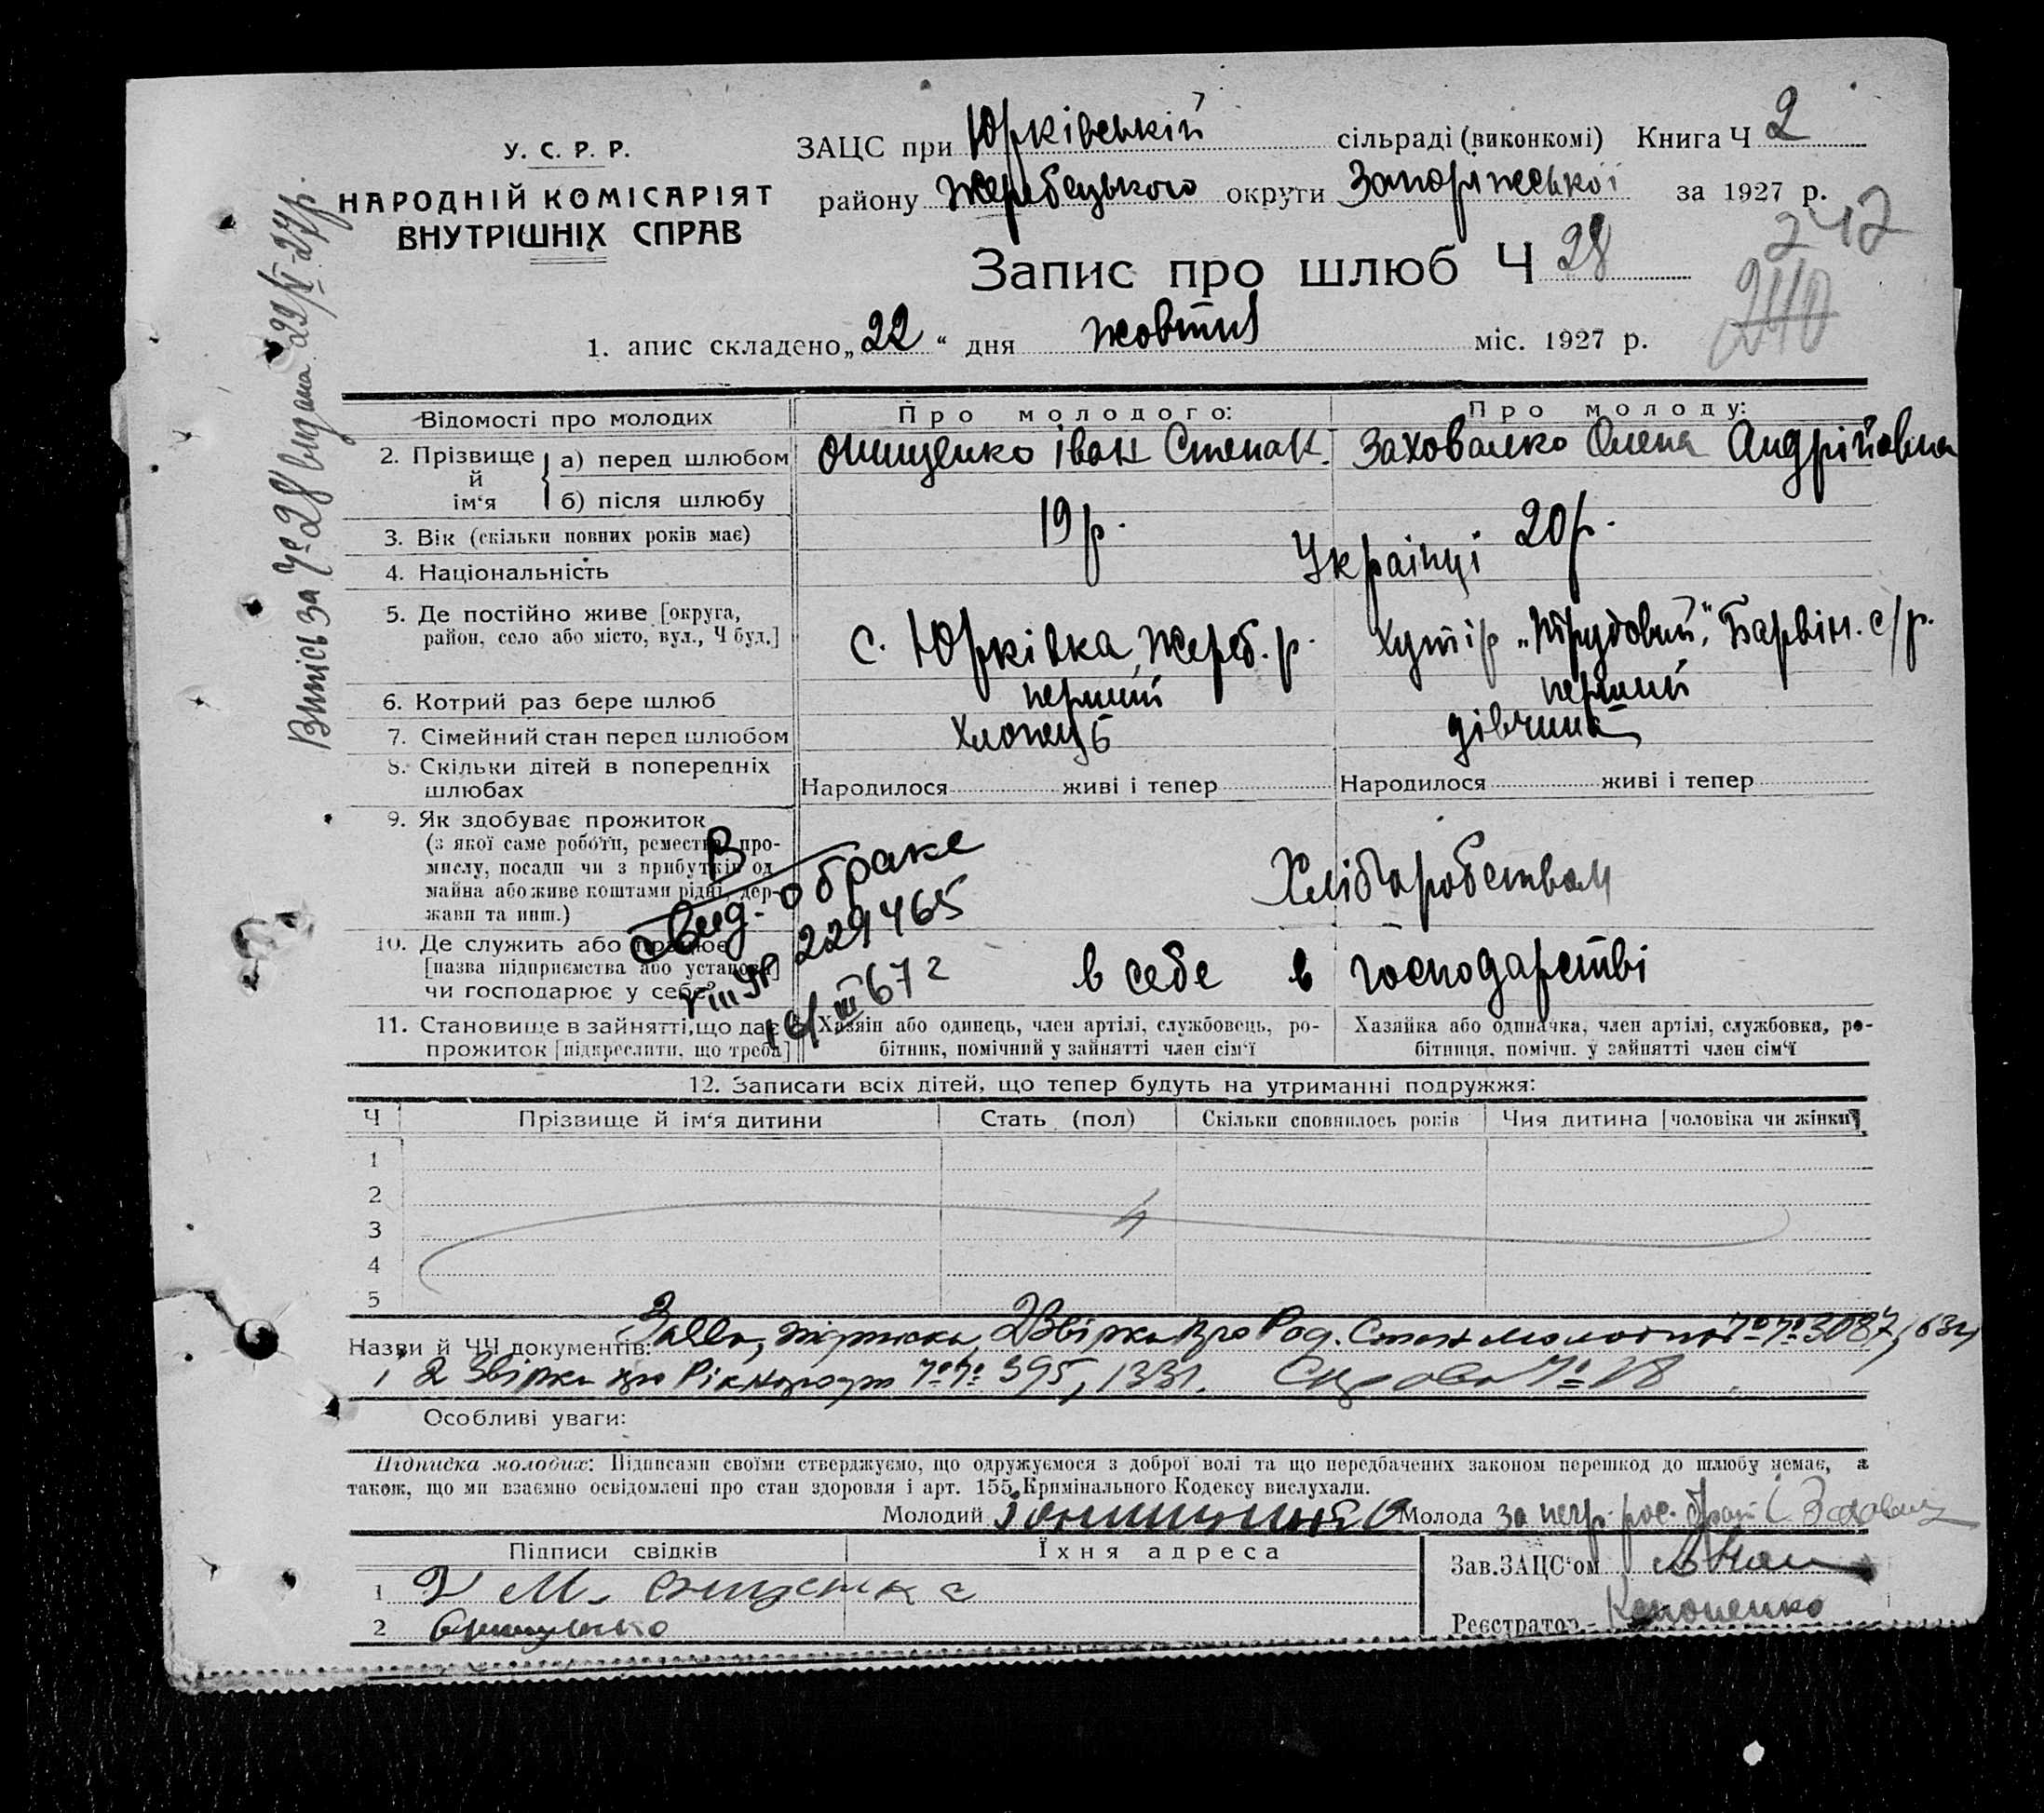 У. С. Р. Р.
НАРОДНІЙ КОМІСАРІЯТ
ВНУТРІШНІХ СПРАВ
ЗАЦС при Юрківській сільраді (виконкомі) Книга Ч 2
району Жеребецького округи Запоріжської за 1927 р.
242
240
Запис про шлюб Ч 28
1. апис складено „22“ дня жовтня міс. 1927 р.
Виписьза Ч° 28 видана 22/VI-27р.
Відомості про молодих
Про молодого:
Про молоду:
2. Прізвище й ім‘я
а) перед шлюбом
Онищенко Іван Степан.
Заховалко Олена Андріївна
б) після шлюбу
3. Вік (скільки повних років має)
19 р.
20 р.
4. Національність
Українці
5. Де постійно живе [округа,
район, село або місто, вул., Ч буд.]
с. Юрківка, Жереб. р.
Хутір „Трудовий“, Барвін. с/р.
6. Котрий раз бере шлюб
перший
перший
7. Сімейний стан перед шлюбом
Хлопець
дівчина
8. Скільки дітей в попередніх
шлюбах
Народилося живі і тепер
Народилося живі і тепер
9. Як здобуває прожиток
(з якої саме роботи, ремества, про-
мислу, посади чи з прибутків од
майна або живе коштами рідні, дер-
жави та инш.)
Хліборобством
В
свид. о браке
УР 229465
16/III 67 г
10. Де служить або працює
[назва підприємства або установи]
чи господарює у себе
в себе в господарстві
11. Становище в зайнятті, що дає
прожиток [підкреслити, що треба]
Хазяїн або одинець, член артілі, службовець, ро-
бітник, помічний у зайнятті член сім‘ї
Хазяйка або одиначка, член артілі, службовка, ро-
бітниця, помічн. у зайнятті член сім‘ї
12. Записати всіх дітей, що тепер будуть на утриманні подружжя:
Ч
Прізвище й ім‘я дитини
Стать (пол)
Скільки сповнилось років
Чия дитина [чоловіка чи жінки]
1
2
3
4
5
Назви й ЧЧ документів: Заява, підписка, 2 Звірки про Род. Стан молодих 3087, 1634
і 2 Звірки про Рікнарод 395, 1331.
Особливі уваги:
Підписка молодих: Підписами своїми стверджуємо, що одружуємося з доброї волі та що передбачених законом перешкод до шлюбу немає, а
також, що ми взаємно освідомлені про стан здоровля і арт. 155 Кримінального Кодексу вислухали.
Молодий
Молода за негр. рос.
Підписи свідків
Їхня адреса
1 М. Онищенка
2 Онищенко
Зав. ЗАЦС‘ом
Реєстратор Кононенко